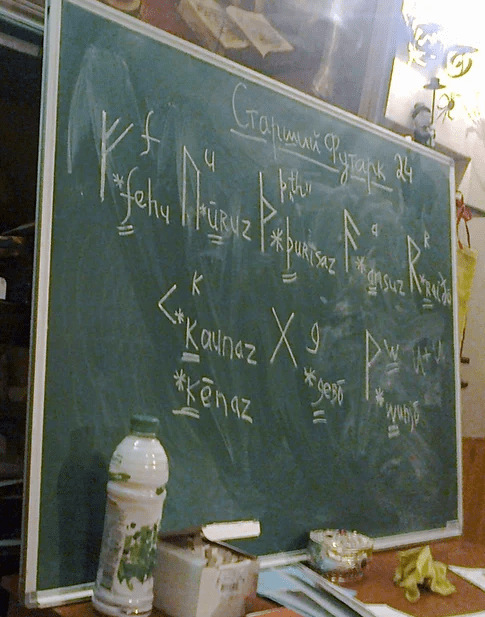 Старший Футарк 24
ᚠ f ᚢ u ᚦ þ "th" ᚨ a ᚱ R
*fehu *ūruz *þurisaz *ansuz *Raiđō
ᚲ K ᚷ g ᚹ w
*Kaunaz *gebō *wunjō
*Kēnaz